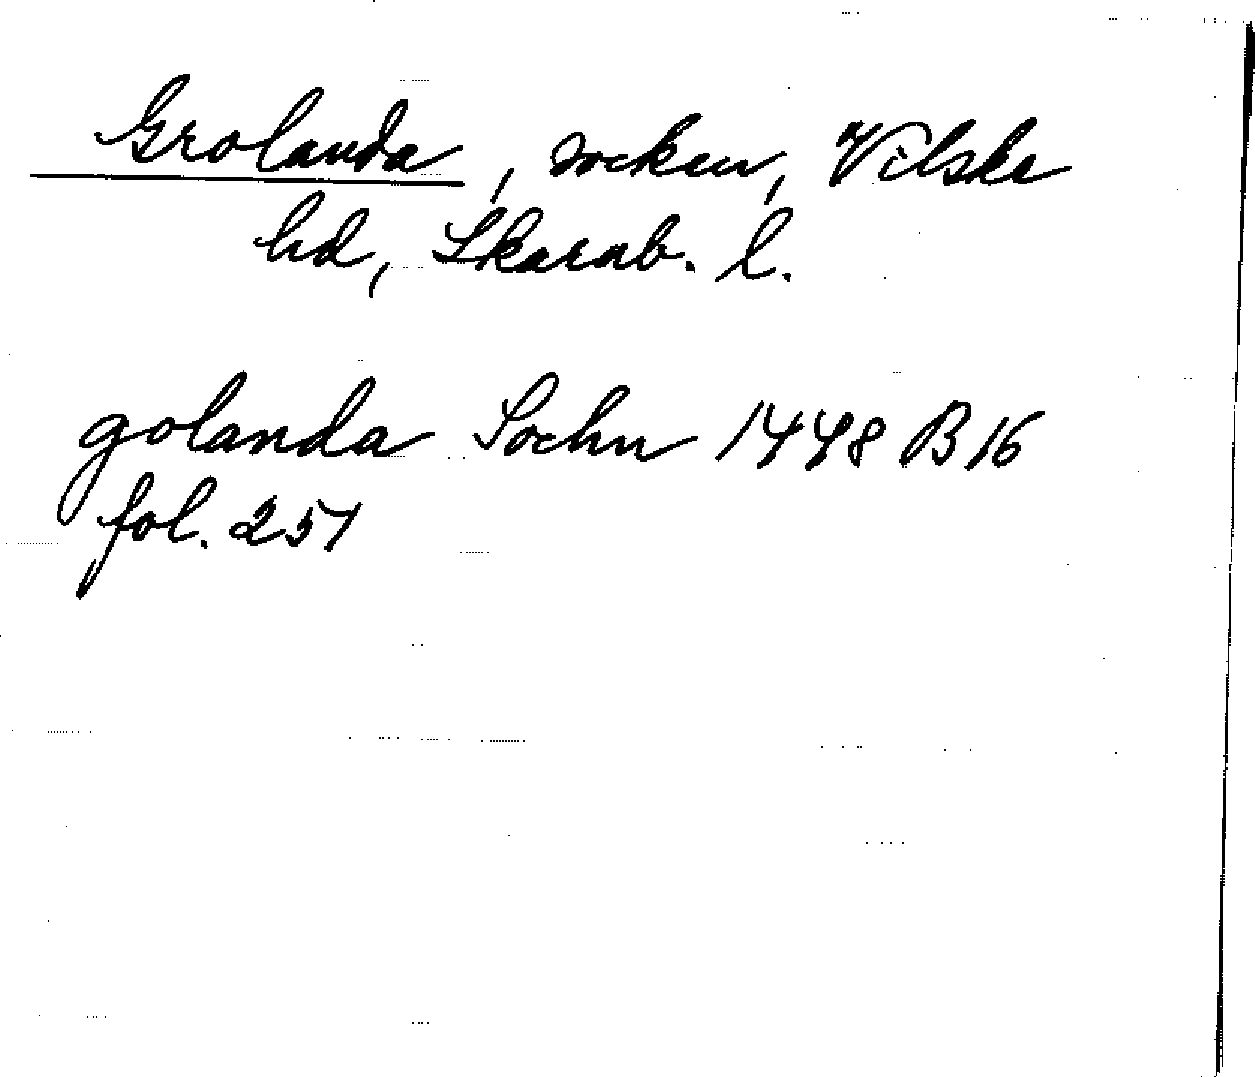 Grolanda, socken, Vilske
hd, Skarab. l.
golanda Sochn 1448 B 16
fol. 251